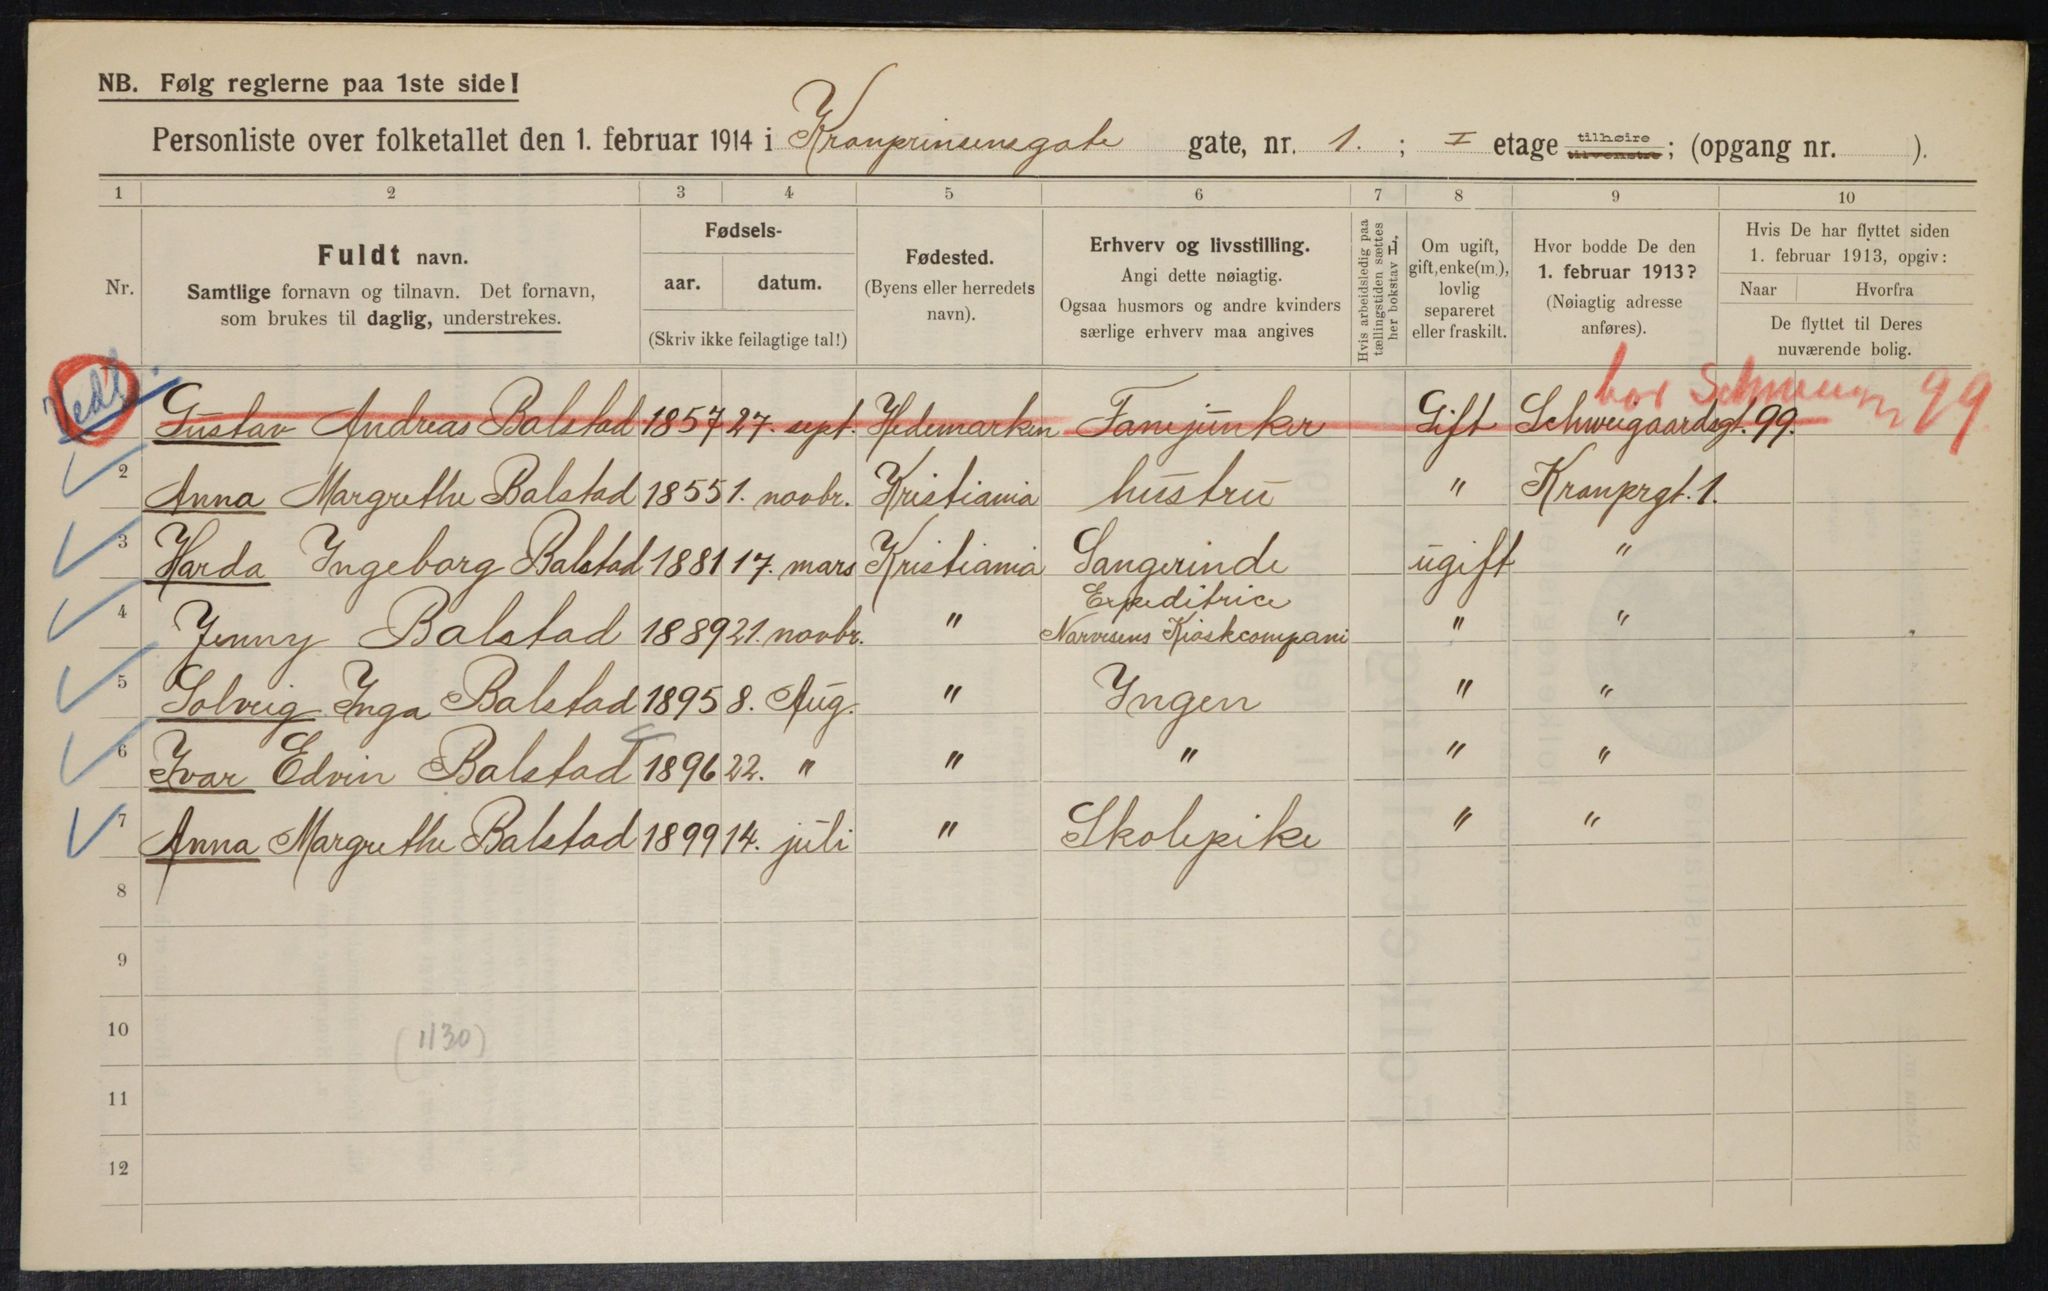 NB. Følg reglerne paa 1ste side!
Personliste over folketallet den 1. februar 1914 i Kronprinsensgate gate, nr. 1. ; I etage tilhøire tilvenstre; (opgang nr. ).
1 2 3 4 5 6 7 8 9 10
Nr.
Fuldt navn.
Samtlige fornavn og tilnavn. Det fornavn,
som brukes til daglig, understrekes.
Fødsels-
aar. datum.
(Skriv ikke feilagtige tal!)
Fødested.
(Byens eller herredets
navn).
Erhverv og livsstilling.
Angi dette nøiagtig.
Ogsaa husmors og andre kvinders
særlige erhverv maa angives
Hvis arbeidsledig paa
tællingstiden sættes
her bokstav L.
Om ugift,
gift, enke(m.),
lovlig
separeret
eller fraskilt.
Hvor bodde De den
1. februar 1913?
(Nøiagtig adresse
anføres).
Hvis De har flyttet siden
1. februar 1913, opgiv:
Naar Hvorfra
De flyttet til Deres
nuværende bolig.
bor 99
Gustav Andreas Balstad 1857 27. sept. Hedemarken Fanejunker Gift Schweigaardsgt. 99.
2 Anna Margrethe Balstad 1855 1. novbr. Kristiania hustru " Kronprgt. 1.
3 Harda Ingeborg Balstad 1881 17. mars Kristiania Sangerinde ugift "
4 Jenny Balstad 1889 21. novbr. " Expeditrice Narvesens Kioskcompani " "
5 Solveig Inga Balstad 1895 8. Aug. " Ingen " "
6 Ivar Edvin Balstad 1896 22. " " " " "
7 Anna Margrethe Balstad 1899 14. juli " Skolepike " "
8
9
10
(1130)
11
12